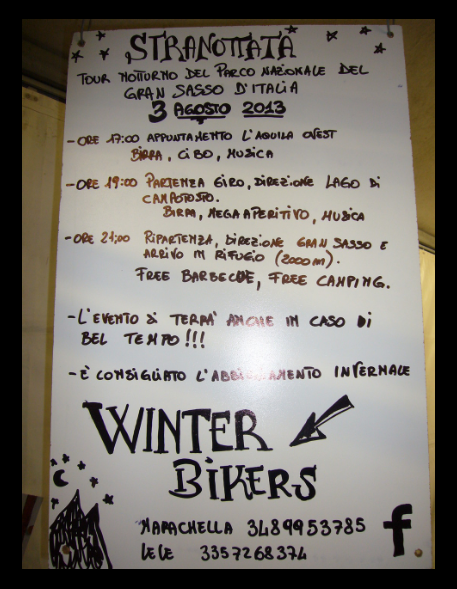 STRANOTTATA
TOUR NOTTURNO DEL PARCO NAZIONALE DEL
GRAN SASSO D'ITALIA
3 AGOSTO 2013
- ORE 17:00 APPUNTAMENTO L'AQUILA OVEST
BIRRA, CIBO, MUSICA
- ORE 19:00 PARTENZA GIRO, DIREZIONE LAGO DI
CAMPOTOSTO.
BIRRA, MEGA APERITIVO, MUSICA
- ORE 21:00 RIPARTENZA, DIREZIONE GRAN SASSO E
ARRIVO IN RIFUGIO (2000m).
FREE BARBECUE, FREE CAMPING.
- L'EVENTO SI TERRA' ANCHE IN CASO DI
BEL TEMPO!!!
- È CONSIGLIATO L'ABBIGLIAMENTO INVERNALE
WINTER
BIKERS
MAPACHELLA 3489953785
LELE 3357268374
f